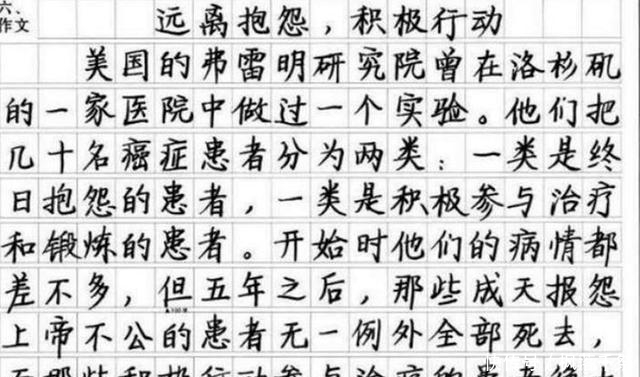 六、
作文
远离抱怨，积极行动
美国的弗雷明研究院曾在洛杉矶
的一家医院中做过一个实验。他们把
几十名癌症患者分为两类：一类是终
日抱怨的患者，一类是积极参与治疗
和锻炼的患者。开始时他们的病情都
差不多，但五年之后，那些成天报怨
上帝不公的患者无一例外全部死去，